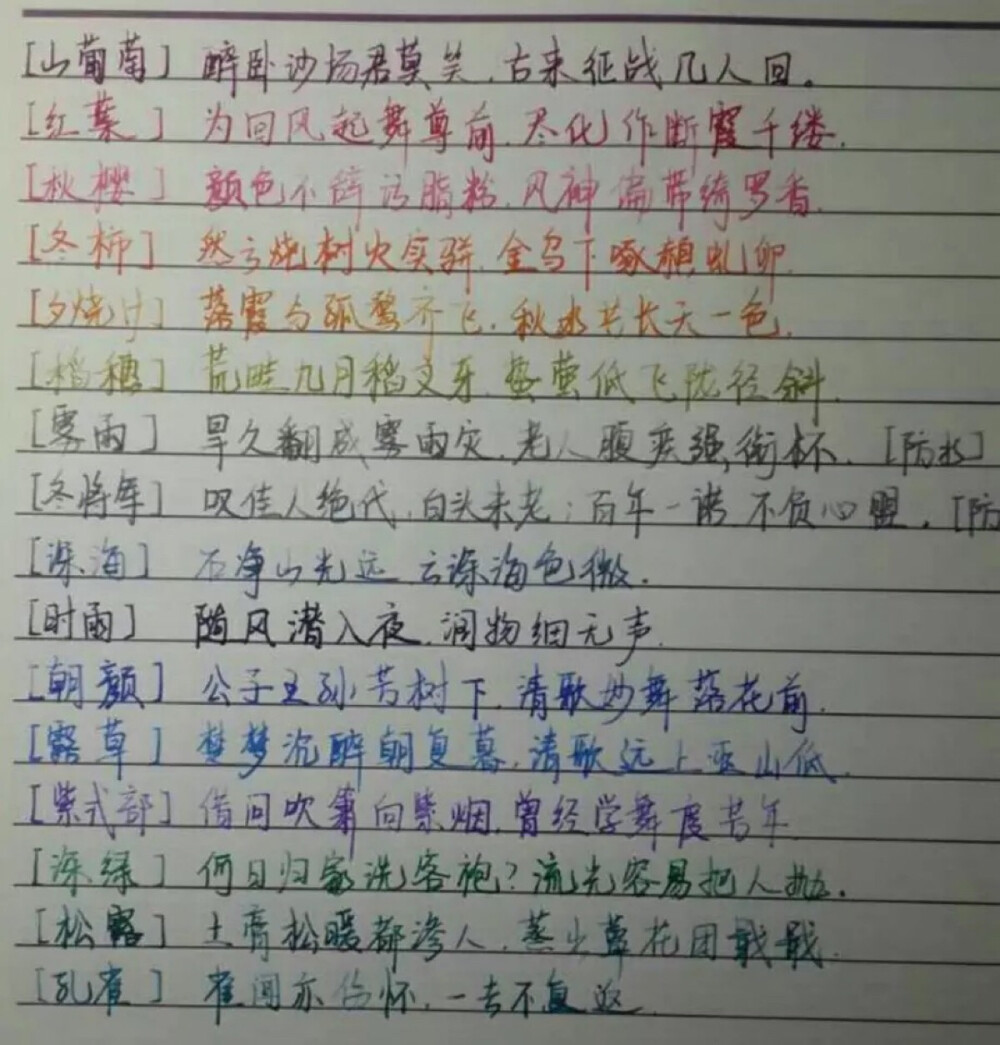 [山葡萄] 醉卧沙场君莫笑，古来征战几人回。
[红葉] 为回风起舞尊前，尽化作断霞千缕.
[秋樱] 颜色不辞污脂粉，风神偏带绮罗香.
[冬柿] 然云烧树火实骈，金乌下啄赪虬卵.
[夕烧け] 落霞与孤鹜齐飞，秋水共长天一色.
[稻穗] 荒畦九月稻叉牙，蛰萤低飞陇径斜.
[雾雨] 旱久翻成雾雨灾，老人腹疾强衔杯. [防水]
[冬将军] 叹佳人绝代，白头未老；百年一诺 不负心盟. [防
[深海] 石净山光远 云深海色微.
[时雨] 随风潜入夜，润物细无声.
[朝颜] 公子王孙芳树下，清歌妙舞落花前.
[露草] 楚梦沉醉朝复暮，清歌远上巫山低.
[紫式部] 借问吹箫向紫烟，曾经学舞度芳年
[深绿] 何日归家洗客袍？流光容易把人抛.
[松露] 土膏松暖都渗入，蒸出蕈花团戢戢.
[孔雀] 雀闻亦伤怀，一去不复返.